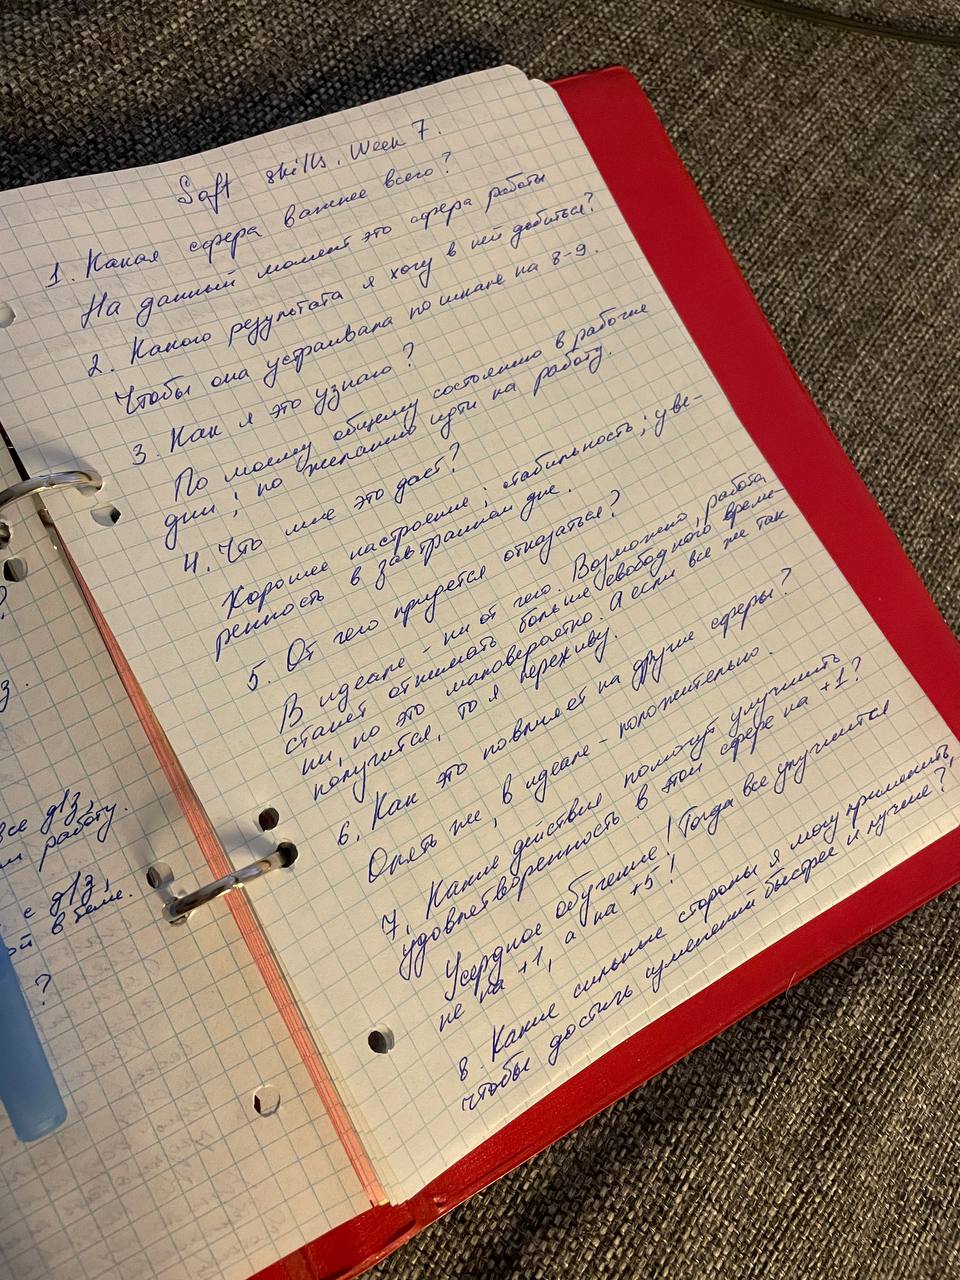 Soft skills. Week 7.
1. Какая сфера важнее всего?
На данный момент это сфера работы
2. Какого результата я хочу в ней добиться?
Чтобы она устраивала по шкале на 8-9.
3. Как я это узнаю?
По моему общему состоянию в рабочие
дни; по желанию идти на работу.
4. Что мне это даст?
Хорошее настроение; стабильность; уве-
ренность в завтрашнем дне.
5. От чего придется отказаться?
В идеале - ни от чего. Возможно, работа
станет отнимать больше свободного време-
ни, но это маловероятно. А если все же так
получится, то я переживу.
6. Как это повлияет на другие сферы?
Опять же, в идеале - положительно.
7. Какие действия помогут улучшить
удовлетворенность в этой сфере на +1?
Усердное обучение! Тогда все улучшится
не на +1, а на +5!
8. Какие сильные стороны я могу применить,
чтобы достичь изменений быстрее и лучше?
?
з.
все д/з,
работу.
с д/з,
в теме.
?